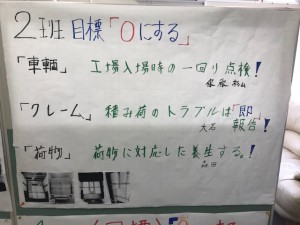 2班 目標「0にする」
「車輌」 工場入場時の一回り点検!
「クレーム」 積み荷のトラブルは「即」報告!
大石
「荷物」 荷物に対応した養生する。!
森田